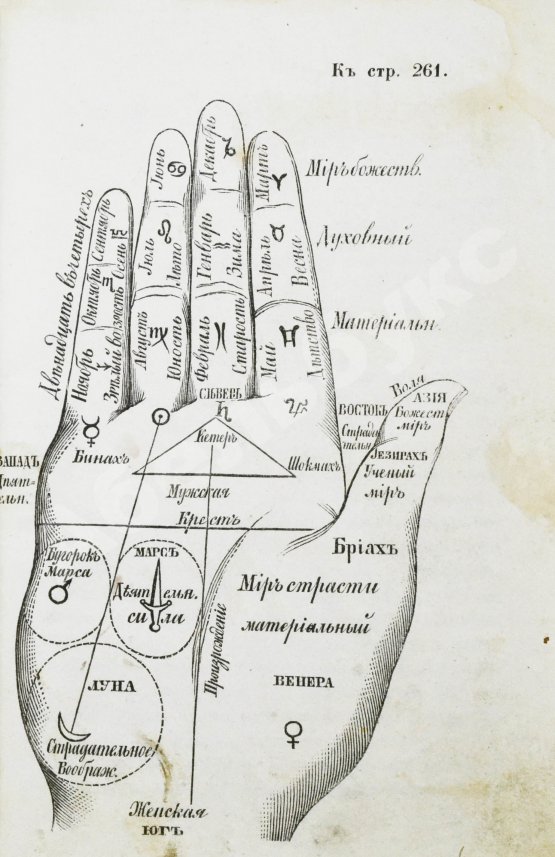 Къ стр. 261.
Двѣнадцать въ четырехъ
Сентябрь
Осень
Октябрь
Ноябрь
Зрѣлый возрасть
Іюнь
Іюль
Лѣто
Августъ
Юность
Декабрь
Генварь
Зима
Февраль
Старость
Мартъ
Апрѣль
Весна
Май
Дѣтство
Міръ божеств.
Духовный
Матеріальн.
Воля
АЗІЯ
Божест
міръ
ІЕЗИРАХЪ
Ученый
міръ
ВОСТОКЪ
Страда
тельн.
СѢВЕРЪ
Кетеръ
Бинахъ
Шокмахъ
Мужская
Крестъ
ЗАПАДЪ
Дѣят-
ельн.
Бугорокъ
Марса
МАРСЪ
Дѣятельн.
сила
Бріахъ
Міръ страсти
матеріальный
ВЕНЕРА
ЛУНА
Страдательное
Воображ.
Женская
ЮГЪ